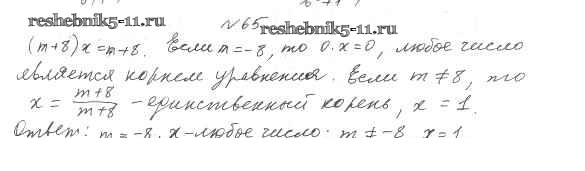 reshebnik5-11.ru
№65 reshebnik5-11.ru
(m+8)x=m+8. Если m=-8, то 0·x=0, любое число
является корнем уравнения. Если m≠8, то
x = m+8/m+8 - единственный корень, x = 1.
Ответ: m=-8. x-любое число. m≠-8 x=1